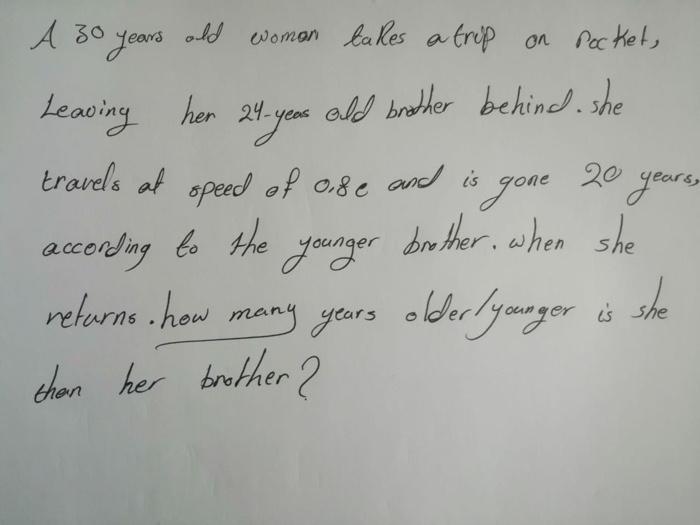 A 30 years old woman takes a trip on Rocket,
Leaving her 24-yeas old brother behind. she
travels at speed of 0.8c and is gone 20 years,
according to the younger brother. when she
returns. how many years older/younger is she
than her brother?